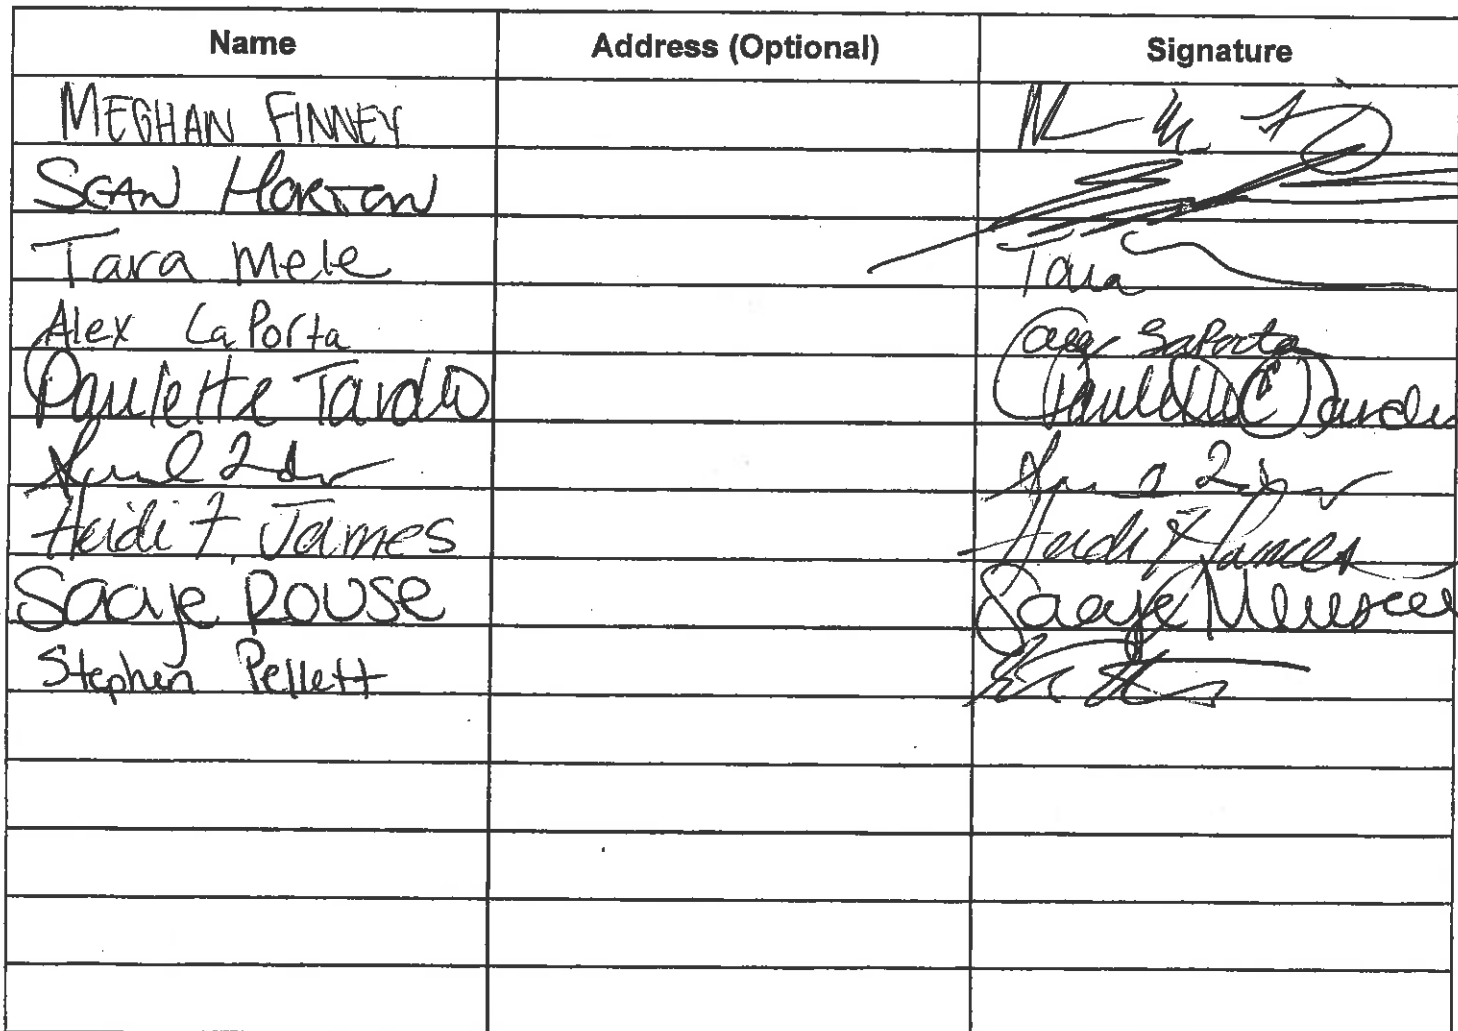 Name Address (Optional) Signature
MEGHAN FINNEY
SEAN HORTON
Tara Mele Tara
Alex LaPorta Alex LaPorta
Paulette Tardio Paulette C Tardio
Heidi F. James Heidi F James
Saaye Rouse Saaye
Stephen Pellett